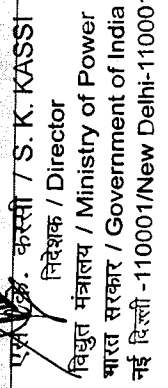 एस. के. कस्सी / S. K. KASSI
निदेशक / Director
विद्युत मंत्रालय / Ministry of Power
भारत सरकार / Government of India
नई दिल्ली -110001/New Delhi-110001